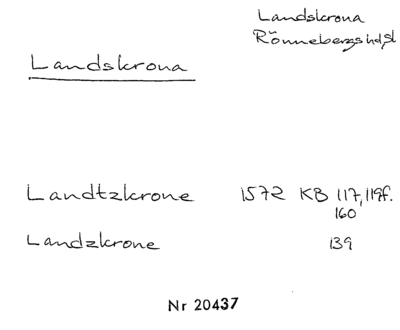 Landskrona
Rönnebergs hd, Sk
Landskrona
Landtzkrone 1572 KB 117, 119f.
160
Landzkrone 139
Nr 20437